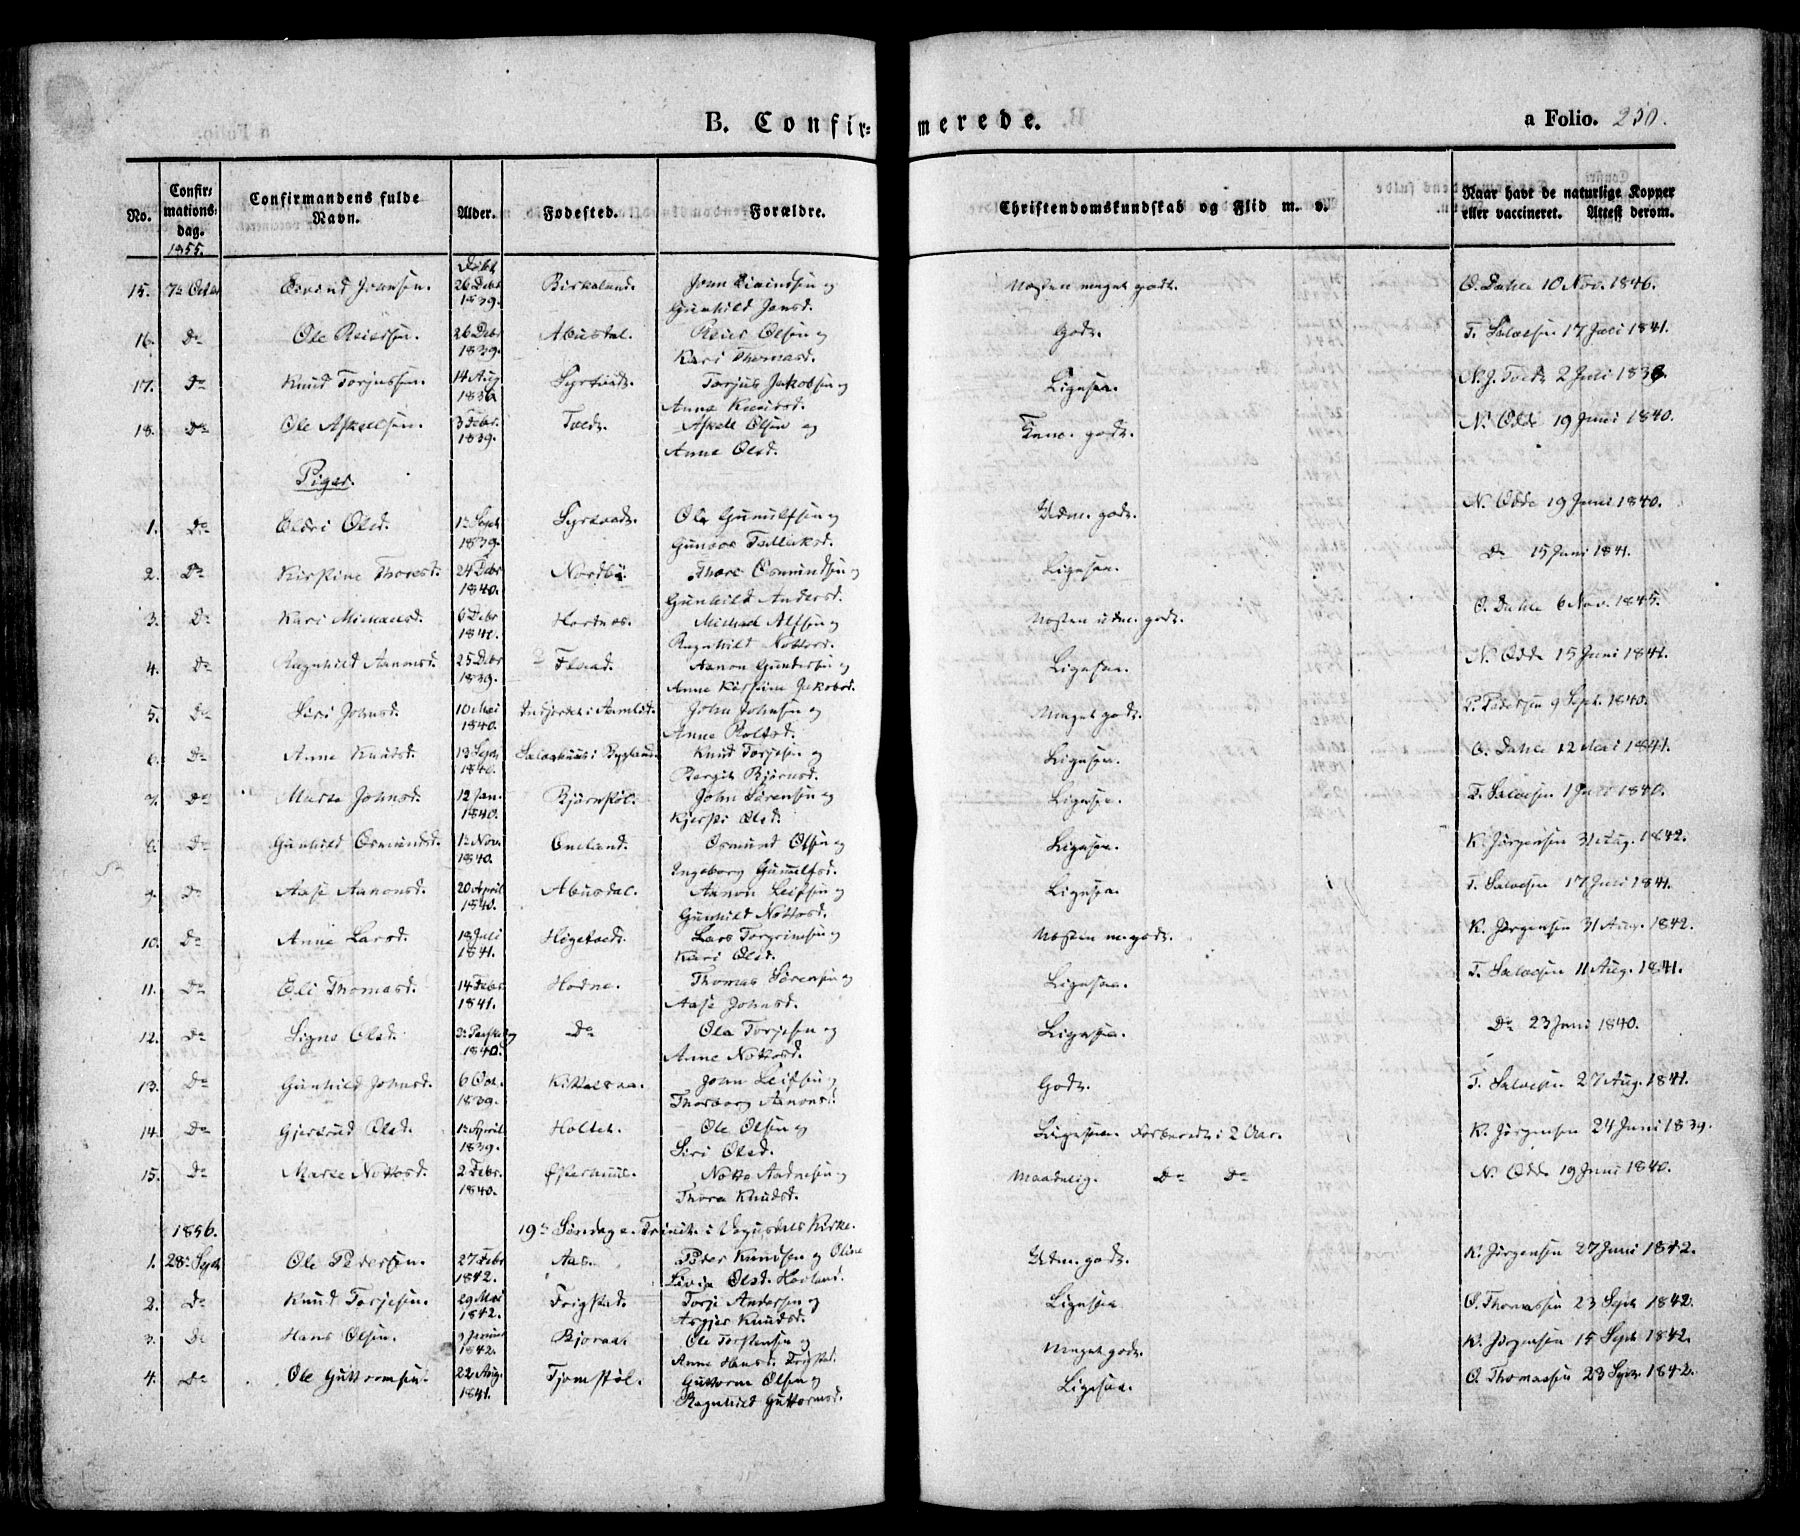 B. Confir= merede.
a Folio. 250.
No. Confir= mations= dag. Confirmandens fulde Navn. Alder. Fødested. Forældre. Christendomskundskab og Flid m. v. Naar havt de naturlige Kopper eller vaccineret. Attest derom.
1855. Döbt
15. 7de Octbr Johnsen. 26 Debr 1839. Birkeland. John Eivindsen og Gunhild Jonsd. Næsten meget godt. O. Dahle 10 Nov. 1846.
16. Do Ole Reiersen. 26 Debr 1839. Abusdal. Reier Olsen og Kari Thomasd. Godt. T. Salvesen 17 Juli 1841.
17. Do Knud Torjussen. 14 Aug 1836. Syrtveds. Torjus Jakobsen og Anne Knudsd. Ligesaa. N. J. Tveds 2 Juli 1838.
18. Do Ole Askelsen. 3 Febr. 1839. Tveds. Askell Olsen og Anne Olsd. Temm. godt. N. Odde 19 Juni 1840.
Piger.
1. Do Eldri Olsd. 1e Sept 1839. Syrtveds. Ole Gunulfsen og Gunvor Telleksd. Udm. godt. N. Odde 19 Juni 1840.
2. Do Kirstine Thoresd. 24 Debr 1840. Nordbö. Thore Osmundsen og Gunhild Andersd. Ligesaa. Do 15 Juni 1841.
3. Do Kari Michaelsd. 6 Debr 1841. Hortnes. Michael Alfsen og Ragnhild Nottosd. Næsten udm. godt. O. Dahle 6 Nov. 1845.
4. Do Ragnhild Aanonsd. 25 Debr 1839. Flaad. Aanon Gundersen og Anne Kirstine Jakobsd. Ligesaa. N. Odde 15 Juni 1841.
5. Do Siri Johnsd. 10 Mai 1840. i Aamlid. John Johnsen og Anne Roltsd. Meget godt. P. Pedersen 9 Sept. 1840.
6. Do Anne Knudsd. 13 Sept 1840. i Bygland. Knud Torjesen og Bergit Björnsd. Ligesaa. O. Dahle 12 Mai 1841.
7. Do Marte Johnsd. 12 Jan. 1840. Björnstöl. John Sörensen og Kjersti Olsd. Ligesaa. T. Salvesen 1 Juli 1840.
8. Do Gunhild Osmundsd. 1e Nov. 1840. Oveland. Osmund Olsen og Ingeborg Gunulfsd. Ligesaa. K. Jörgensen 31 Aug. 1842.
9. Do Aase Aanonsd. 20 April 1840. Abusdal. Aanon Leifsen og Gunhild Nottosd. Ligesaa. T. Salvesen 17 Juli 1841.
10. Do Anne Larsd. 18 Juli 1841. Högetveds. Lars Torgrimsen og Kari Olsd. Næsten m. godt. K. Jörgensen 31 Aug. 1842.
11. Do Eli Thomasd. 14 Febr 1841. Hodne. Thomas Sörensen og Aase Johnsd. Ligesaa. T. Salvesen 11 Aug. 1841.
12. Do Signe Olsd. 1840. Do Ole Torjesen og Anne Nottosd. Ligesaa. Do 23 Juni 1840.
13. Do Gunhild Johnsd. 6 Oct. 1839. Kittelsaa. John Leifsen og Thorborg Aanonsd. Godt. T. Salvesen 27 Aug. 1841.
14. Do Gjertrud Olsd. 1e April 1839. Holtet. Ole Olsen og Siri Olsd. Ligesaa Forberedt i 2 Aar. K. Jörgensen 24 Juni 1839.
15. Do Marte Nottosd. 2 Febr. 1840. Østerhuus. Notto Aadnesen og Thora Knudsd. Maadelig. Do Do N. Odde 19 Juni 1840.
1856. 19de Søndag e. Trinit. i Vegusdals Kirke.
1. 28de Septr Ole Pedersen. 27 Febr 1842. Aas. Peder Knudsen og Oline Sivia Olsd. Hovland. Udm. godt. K. Jörgensen 27 Juni 1842.
2. Do Knud Torjesen. 29 Mai 1842. Frigstad. Torje Andersen og Asgjer Knudsd. Ligesaa O. Thomassen 23 Septr 1842.
3. Do Hans Olsen. 9 Januar 1842. Bjoraas. Ole Torstensen og Anne Hansd. Frigstad. Meget godt. K. Jörgensen 15 Septr 1842.
4. Do Ole Guttormsen. 22 Aug. 1841. Tjomstöl. Guttorm Olsen og Ragnhild Guttormsd. Ligesaa. O. Thomassen 23 Septr 1842.